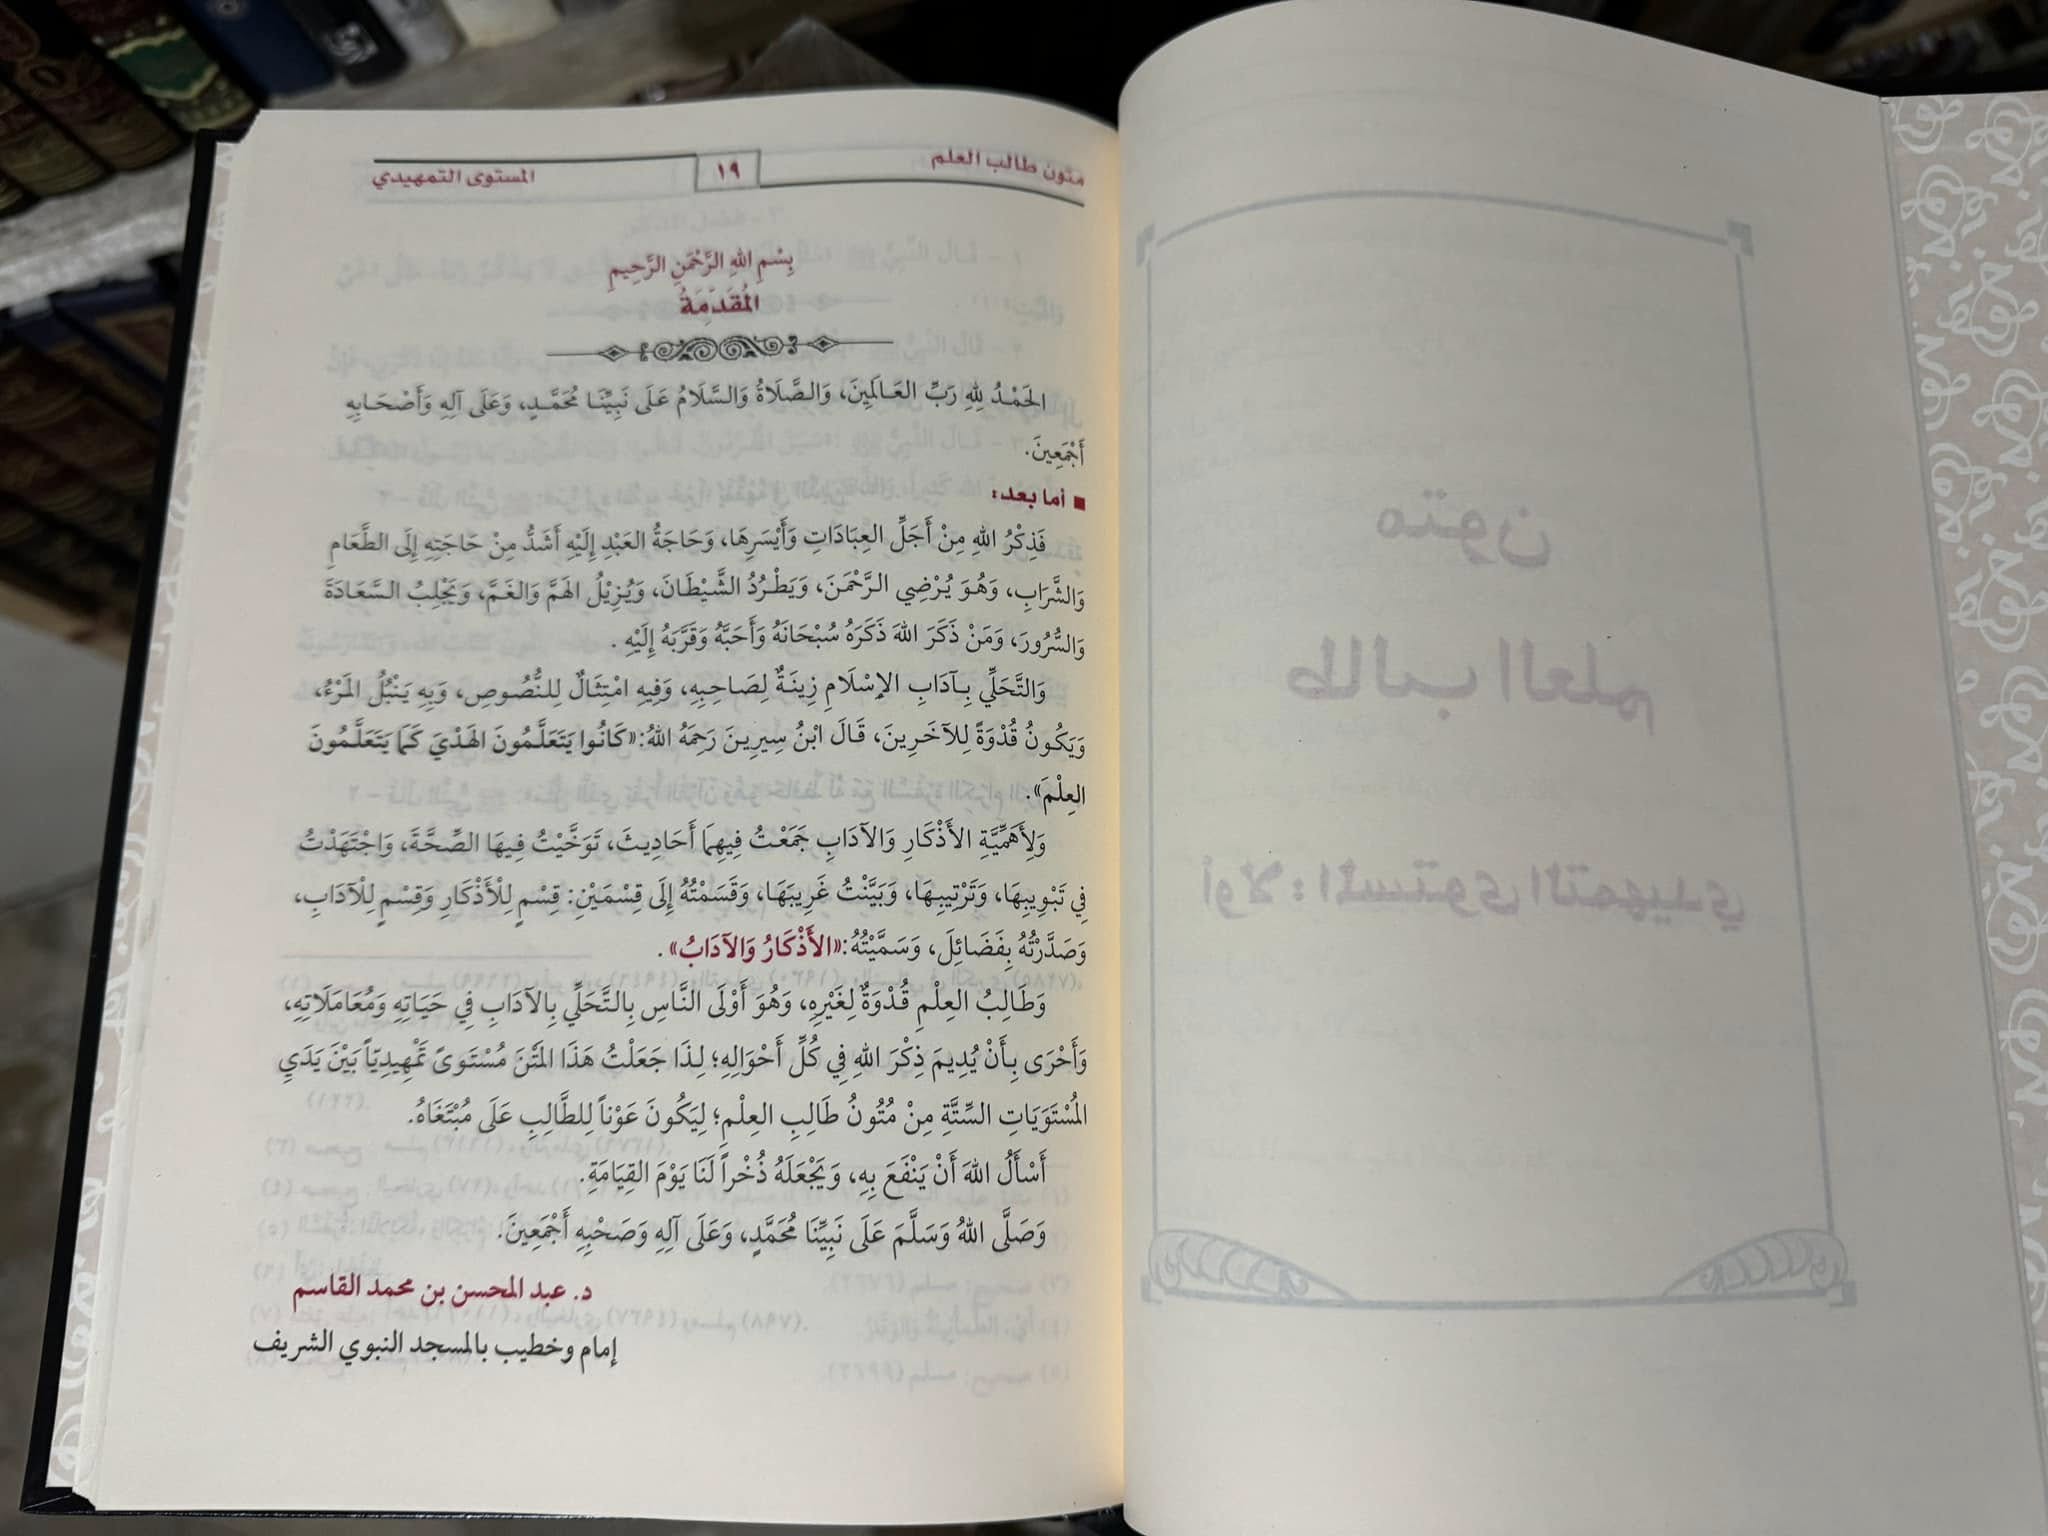 متون طالب العلم
١٩
المستوى التمهيدي
بِسْمِ اللهِ الرَّحْمَنِ الرَّحِيمِ
المُقَدِّمَةُ
الحَمْدُ لِلهِ رَبِّ العَالَمِينَ، وَالصَّلَاةُ وَالسَّلَامُ عَلَى نَبِيِّنَا مُحَمَّدٍ، وَعَلَى آلِهِ وَأَصْحَابِهِ
أَجْمَعِينَ.
■ أما بعد:
فَذِكْرُ اللهِ مِنْ أَجَلِّ العِبَادَاتِ وَأَيْسَرِهَا، وَحَاجَةُ العَبْدِ إِلَيْهِ أَشَدُّ مِنْ حَاجَتِهِ إِلَى الطَّعَامِ
وَالشَّرَابِ، وَهُوَ يُرْضِي الرَّحْمَنَ، وَيَطْرُدُ الشَّيْطَانَ، وَيُزِيْلُ الهَمَّ وَالغَمَّ، وَيَجْلِبُ السَّعَادَةَ
وَالسُّرُورَ، وَمَنْ ذَكَرَ اللهَ ذَكَرَهُ سُبْحَانَهُ وَأَحَبَّهُ وَقَرَّبَهُ إِلَيْهِ .
وَالتَّحَلِّي بِآدَابِ الإِسْلَامِ زِينَةٌ لِصَاحِبِهِ، وَفِيهِ امْتِثَالٌ لِلنُّصُوصِ، وَبِهِ يَنْبُلُ المَرْءُ،
وَيَكُونُ قُدْوَةً لِلآخَرِينَ، قَالَ ابْنُ سِيرِينَ رَحِمَهُ اللهُ:«كَانُوا يَتَعَلَّمُونَ الهَدْيَ كَمَا يَتَعَلَّمُونَ
العِلْمَ».
وَلِأَهَمِّيَّةِ الأَذْكَارِ وَالآدَابِ جَمَعْتُ فِيهِمَا أَحَادِيثَ، تَوَخَّيْتُ فِيهَا الصِّحَّةَ، وَاجْتَهَدْتُ
فِي تَبْوِيبِهَا، وَتَرْتِيبِهَا، وَبَيَّنْتُ غَرِيبَهَا، وَقَسَمْتُهُ إِلَى قِسْمَيْنِ: قِسْمٍ لِلْأَذْكَارِ وَقِسْمٍ لِلْآدَابِ،
وَصَدَّرْتُهُ بِفَضَائِلَ، وَسَمَّيْتُهُ:«الأَذْكَارُ وَالآدَابُ» .
وَطَالِبُ العِلْمِ قُدْوَةٌ لِغَيْرِهِ، وَهُوَ أَوْلَى النَّاسِ بِالتَّحَلِّي بِالآدَابِ فِي حَيَاتِهِ وَمُعَامَلَاتِهِ،
وَأَحْرَى بِأَنْ يُدِيمَ ذِكْرَ اللهِ فِي كُلِّ أَحْوَالِهِ؛ لِذَا جَعَلْتُ هَذَا المَتْنَ مُسْتَوىً تَمْهِيدِيّاً بَيْنَ يَدَيِ
المُسْتَوَيَاتِ السِّتَّةِ مِنْ مُتُونُ طَالِبِ العِلْمِ؛ لِيَكُونَ عَوْناً لِلطَّالِبِ عَلَى مُبْتَغَاهُ.
أَسْأَلُ اللهَ أَنْ يَنْفَعَ بِهِ، وَيَجْعَلَهُ ذُخْراً لَنَا يَوْمَ القِيَامَةِ.
وَصَلَّى اللهُ وَسَلَّمَ عَلَى نَبِيِّنَا مُحَمَّدٍ، وَعَلَى آلِهِ وَصَحْبِهِ أَجْمَعِينَ.
د. عبد المحسن بن محمد القاسم
إمام وخطيب بالمسجد النبوي الشريف
متون
طالب العلم
أولا: المستوى التمهيدي